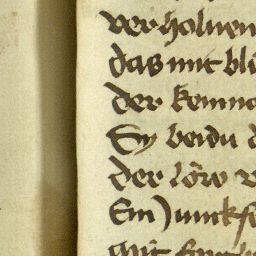 verholnen
das mit blů
der kemna
Sy beidu d
der lóro v
Ein Junckf